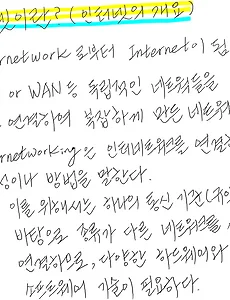 넷이란? (인터넷의 개요)
ernetwork 로부터 Internet이 됨
or WAN 등 독립적인 네트워크들을
연결하여 복잡하게 만든 네트워
rnetworking은 인터네트워크를 연결하
성이나 방법을 말한다.
이를 위해서는 하나의 통신 기관(규약
바탕으로 종류가 다른 네트워크를,
연결하므로, 다양한 하드웨어와
소프트웨어 기술이 필요하다.